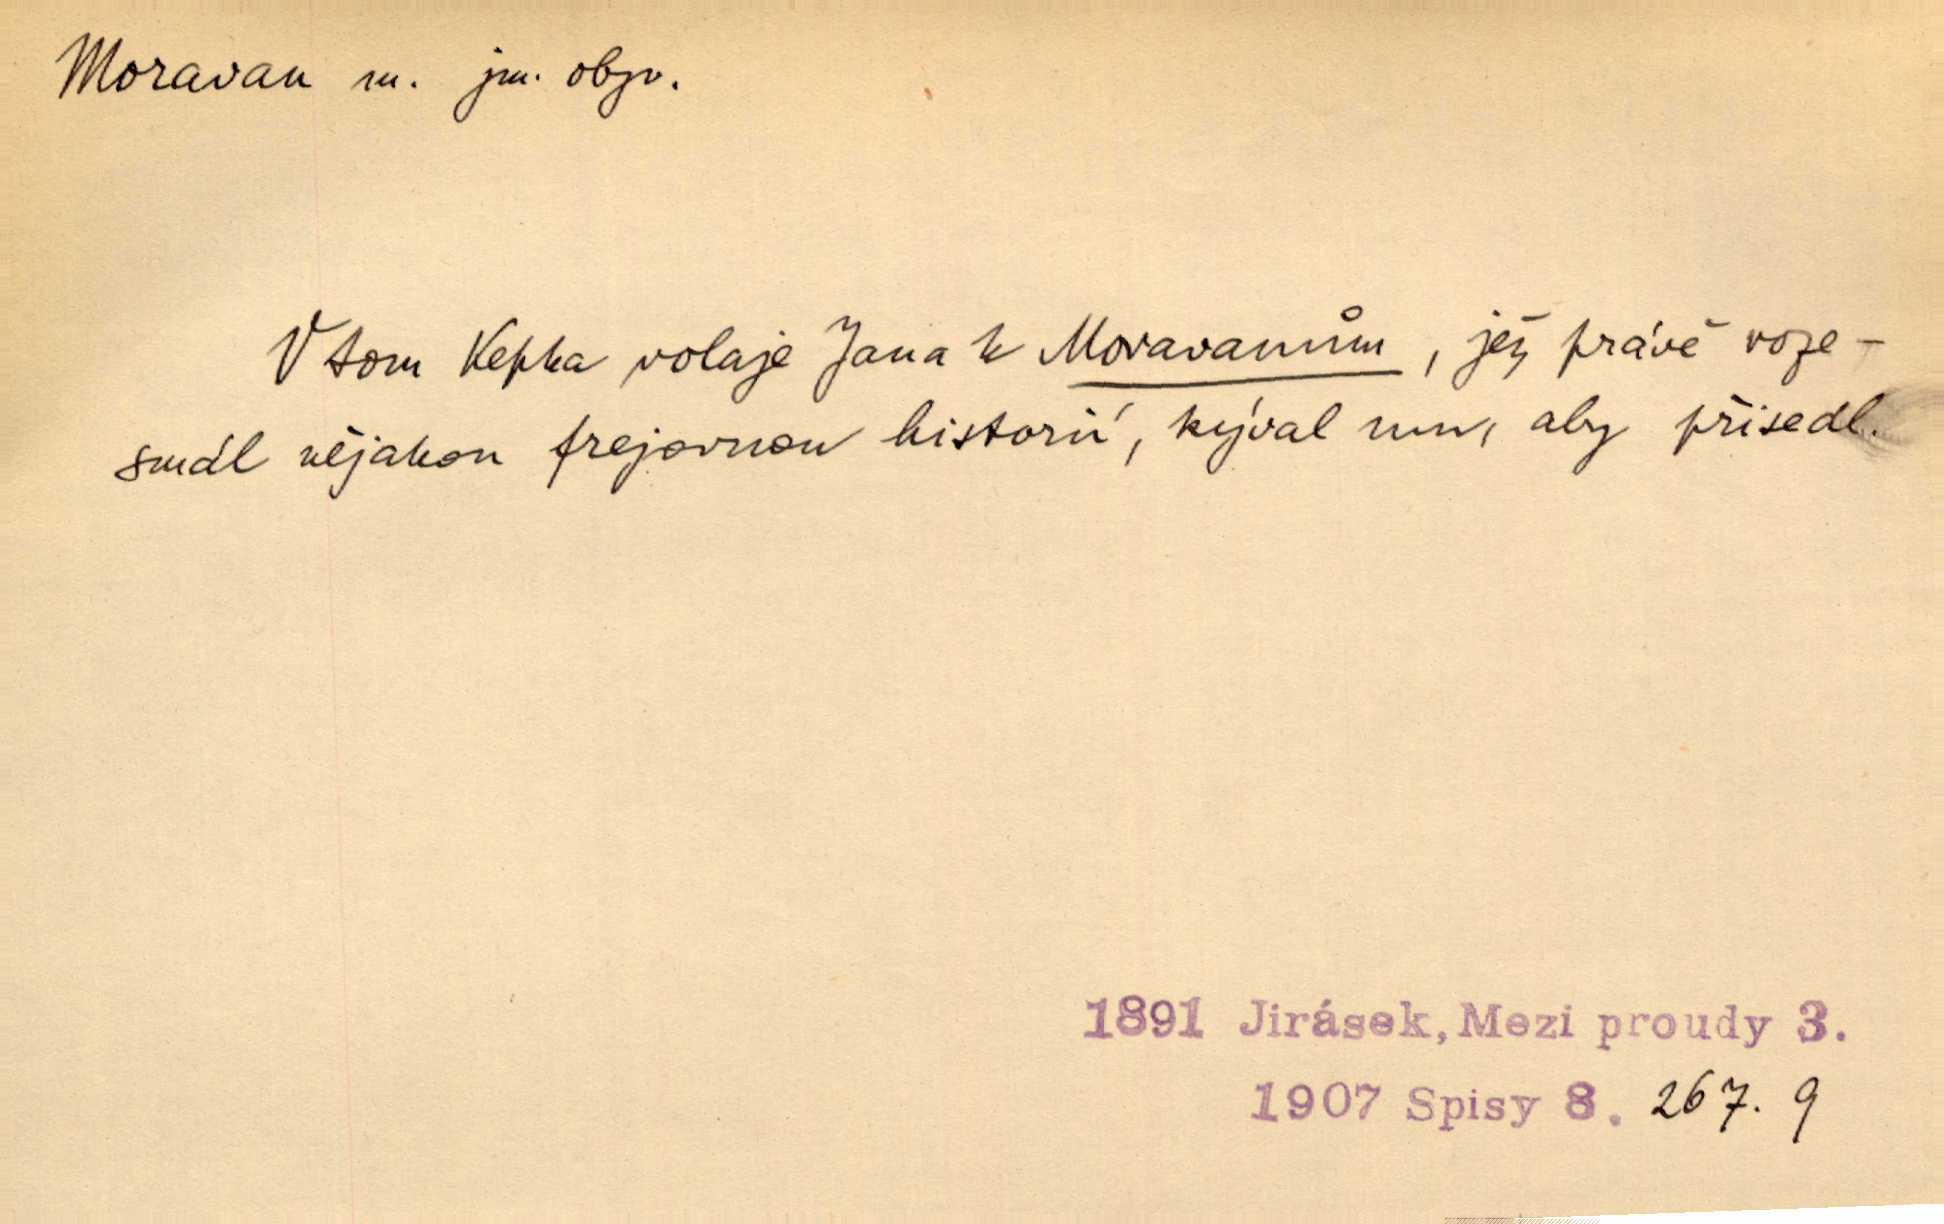 Moravan m. jm. obyv.
V tom Kepka volaje Jana k Moravanům, jež právě roze-
smál nějakou frejovnou historií, kýval mu, aby přisedl.
1891 Jirásek, Mezi proudy 3.
1907 Spisy 8. 267. 9